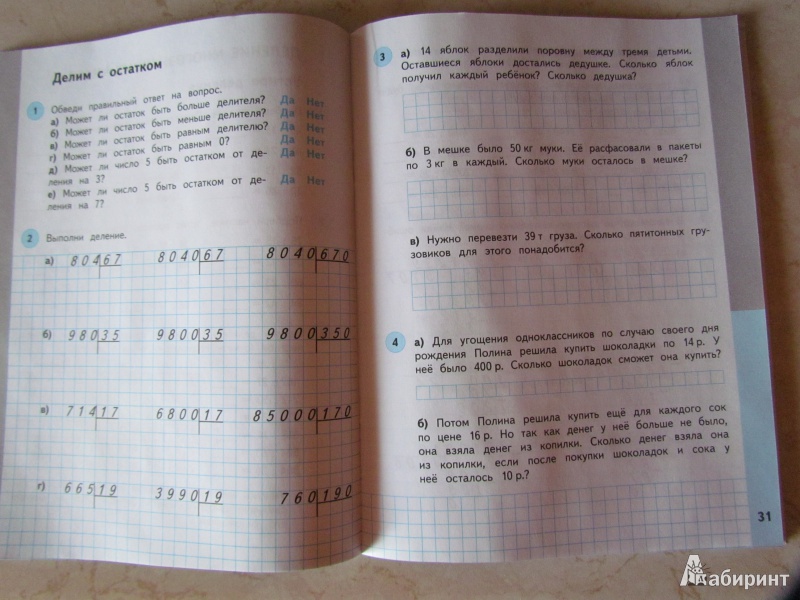 Делим с остатком
1 Обведи правильный ответ на вопрос.
а) Может ли остаток быть больше делителя? Да Нет
б) Может ли остаток быть меньше делителя? Да Нет
в) Может ли остаток быть равным делителю? Да Нет
г) Может ли остаток быть равным 0? Да Нет
д) Может ли число 5 быть остатком от де-
ления на 3? Да Нет
е) Может ли число 5 быть остатком от де-
ления на 7? Да Нет
2 Выполни деление.
а) 804 67 8040 67 8040 670
б) 980 35 9800 35 9800 350
в) 714 17 6800 17 85000 170
г) 665 19 3990 19 760 190
3 а) 14 яблок разделили поровну между тремя детьми.
Оставшиеся яблоки достались дедушке. Сколько яблок
получил каждый ребёнок? Сколько дедушка?
б) В мешке было 50 кг муки. Её расфасовали в пакеты
по 3 кг в каждый. Сколько муки осталось в мешке?
в) Нужно перевезти 39 т груза. Сколько пятитонных гру-
зовиков для этого понадобится?
4 а) Для угощения одноклассников по случаю своего дня
рождения Полина решила купить шоколадки по 14 р. У
неё было 400 р. Сколько шоколадок сможет она купить?
б) Потом Полина решила купить ещё для каждого сок
по цене 16 р. Но так как денег у неё больше не было,
она взяла денег из копилки. Сколько денег взяла она
из копилки, если после покупки шоколадок и сока у
неё осталось 10 р.?
31
Лабиринт